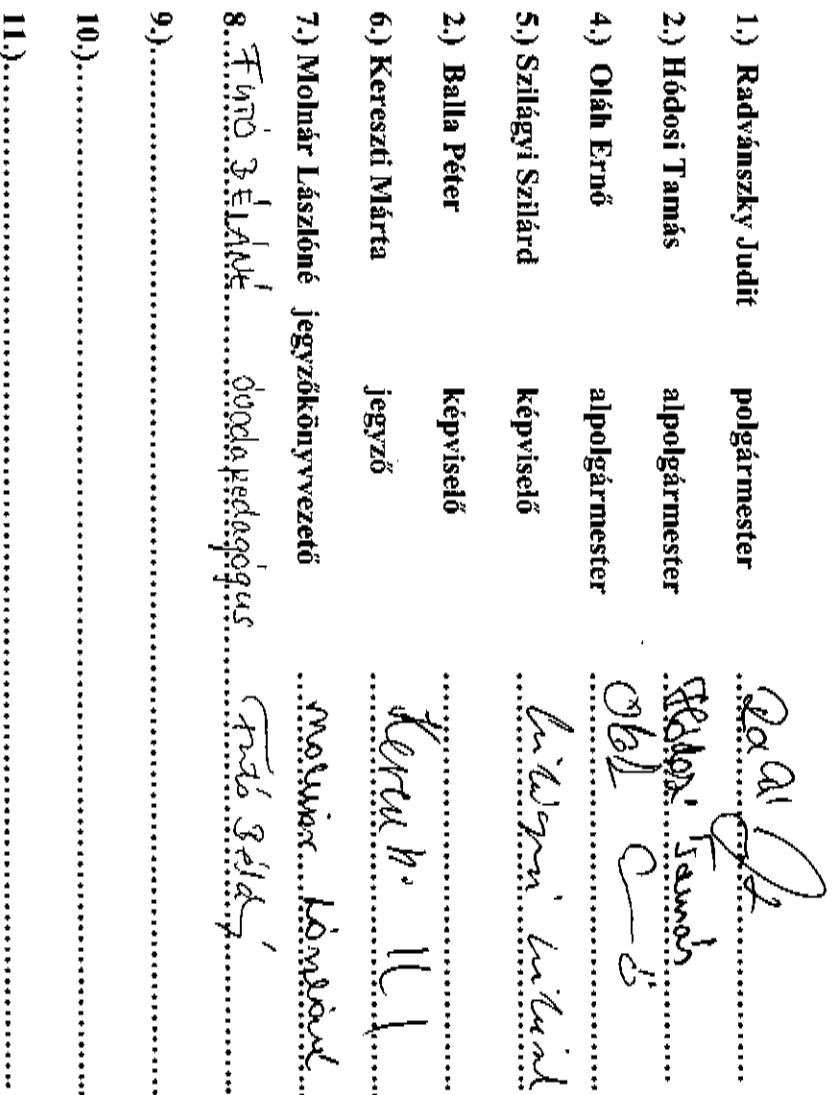 1.) Radvánszky Judit polgármester
2.) Hódosi Tamás alpolgármester Hódosi Tamás
4.) Oláh Ernő alpolgármester
5.) Szilágyi Szilárd képviselő Szilágyi Szilárd
2.) Balla Péter képviselő
6.) Kereszti Márta jegyző
7.) Molnár Lászlóné jegyzőkönyvvezető Molnár Lászlóné
8. FUTÓ BÉLÁNÉ óvodapedagógus Futó Béláné
9.)
10.)
11.)